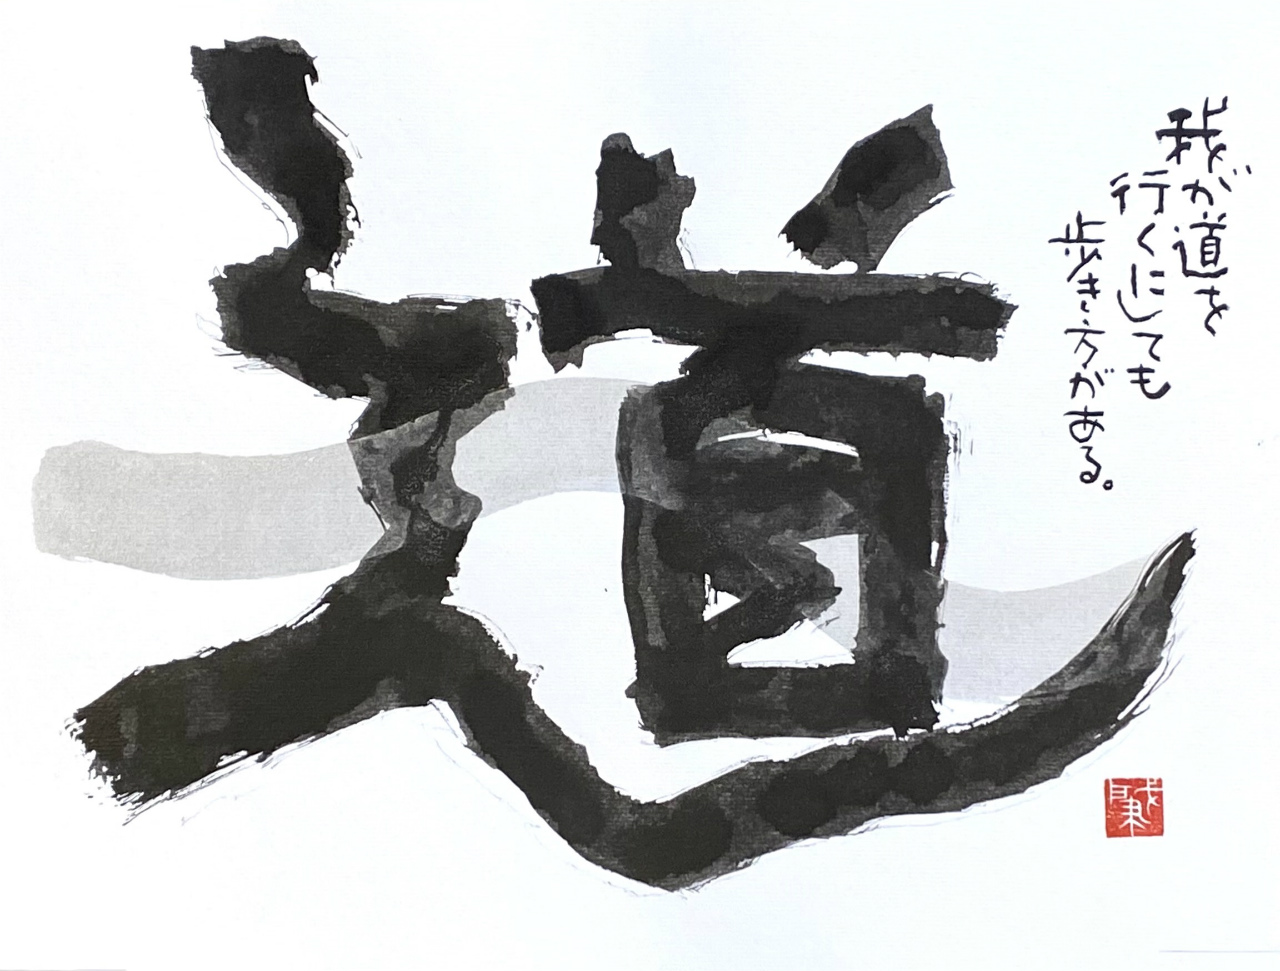 道
我が道を
行くにしても
歩き方がある。